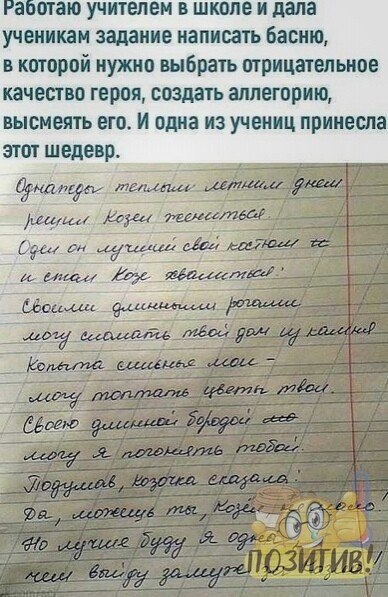 Работаю учителем в школе и дала
ученикам задание написать басню,
в которой нужно выбрать отрицательное
качество героя, создать аллегорию,
высмеять его. И одна из учениц принесла
этот шедевр.
Однажды теплым летним днем
решил Козел жениться.
Одел он лучший свой костюм
и стал Козе хвалиться:
Своими длинными рогами
могу сломать твой дом из камня
Копыта сильные мои -
могу топтать цветы твои.
Своею длинной бородой
могу я погонять тобой.
Подумав, козочка сказала:
Да, можешь ты, Козел,
Но лучше буду я одна
чем выйду замуж
ПОЗИТИВ!